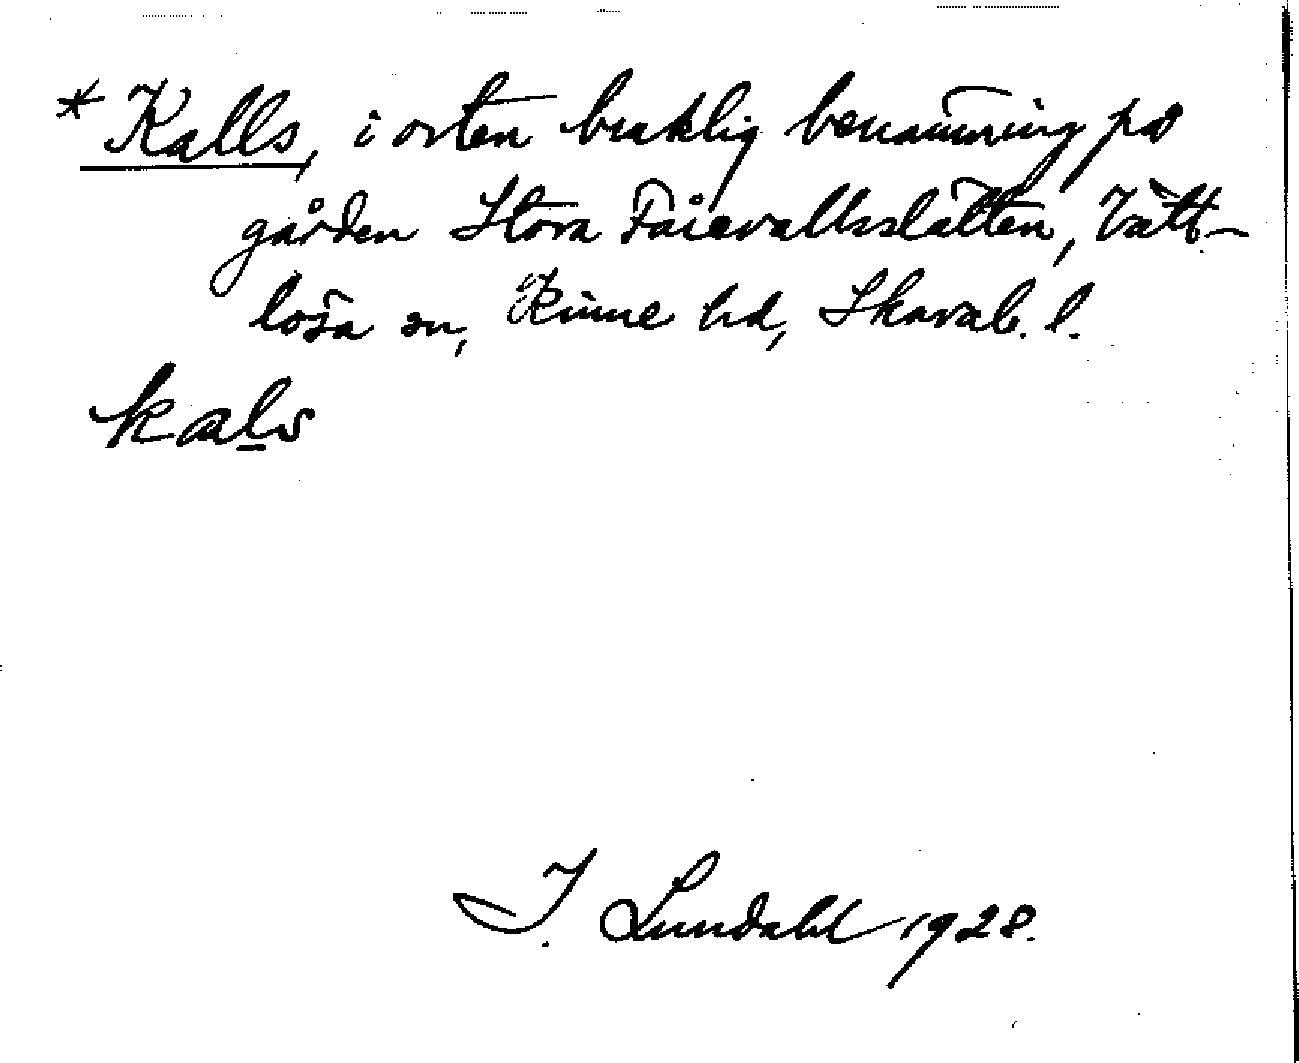 * Kalls, i orten bruklig benämning på
gården Stora Fårevallsslätten, Vätt-
lösa sn, Kinne hd, Skarab. l.
kals
I. Lundahl 1928.